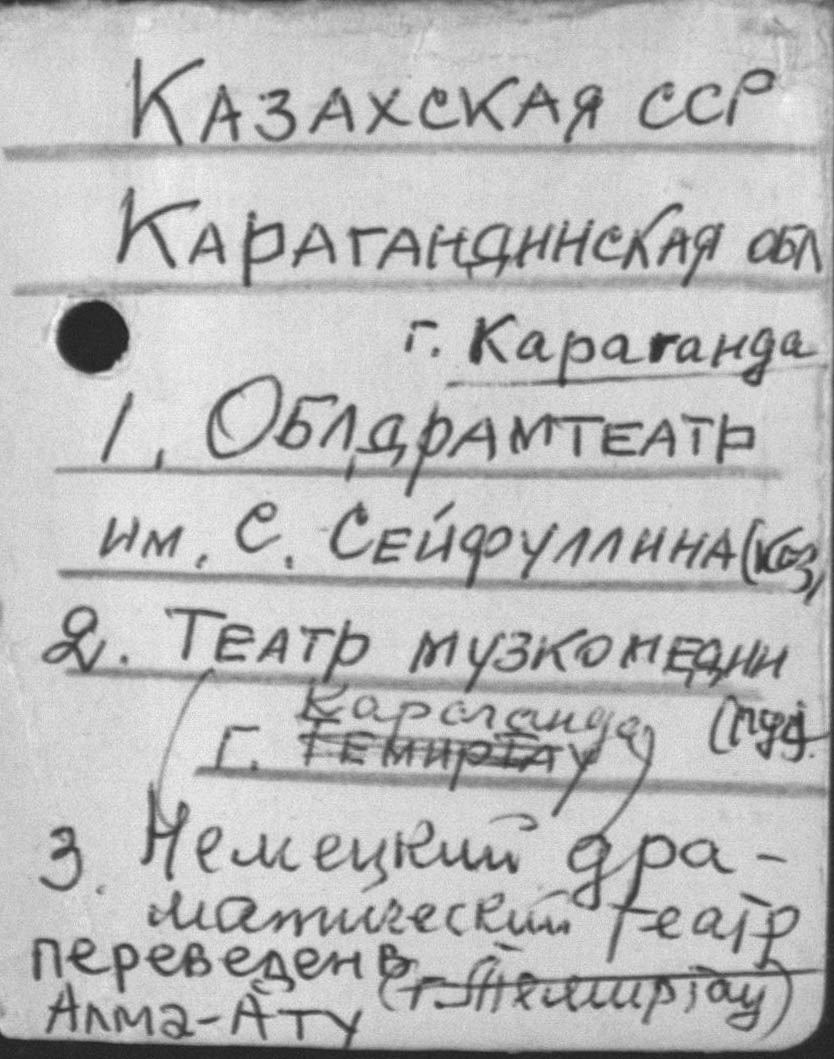 Казахская ССР
Карагандинская обл
г. Караганда
1. Облдрамтеатр
им. С. Сейфуллина (каз)
2. Театр музкомедии
Караганда
г. Темиртау
3. Немецкий дра-
матический театр
переведен в
(г. Темиртау)
Алма-Ату